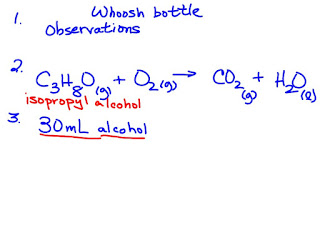 1. Whoosh bottle
Observations
2. C₃H₈O(g) + O₂(g) → CO₂(g) + H₂O(l)
isopropyl alcohol
3. 30mL alcohol